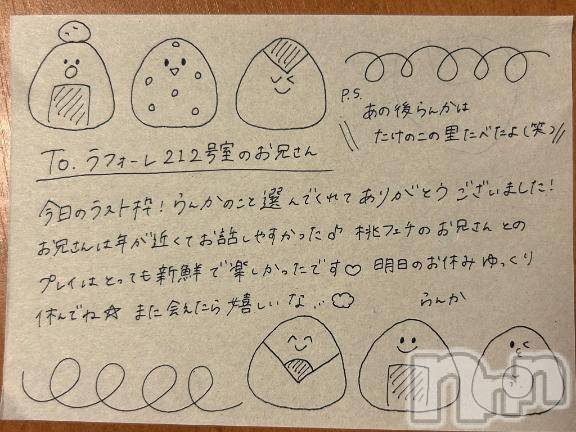 P.S.
あの後らんかは
たけのこの里たべたよ(笑)
To. ラフォーレ212号室のお兄さん
今日のラスト枠！らんかのこと選んでくれてありがとうございました！
お兄さんは年が近くてお話しやすかった♪ 桃フェチのお兄さんとの
プレイはとっても新鮮で楽しかったです♡ 明日のお休みゆっくり
休んでね☆ また会えたら嬉しいな…
らんか
nnn